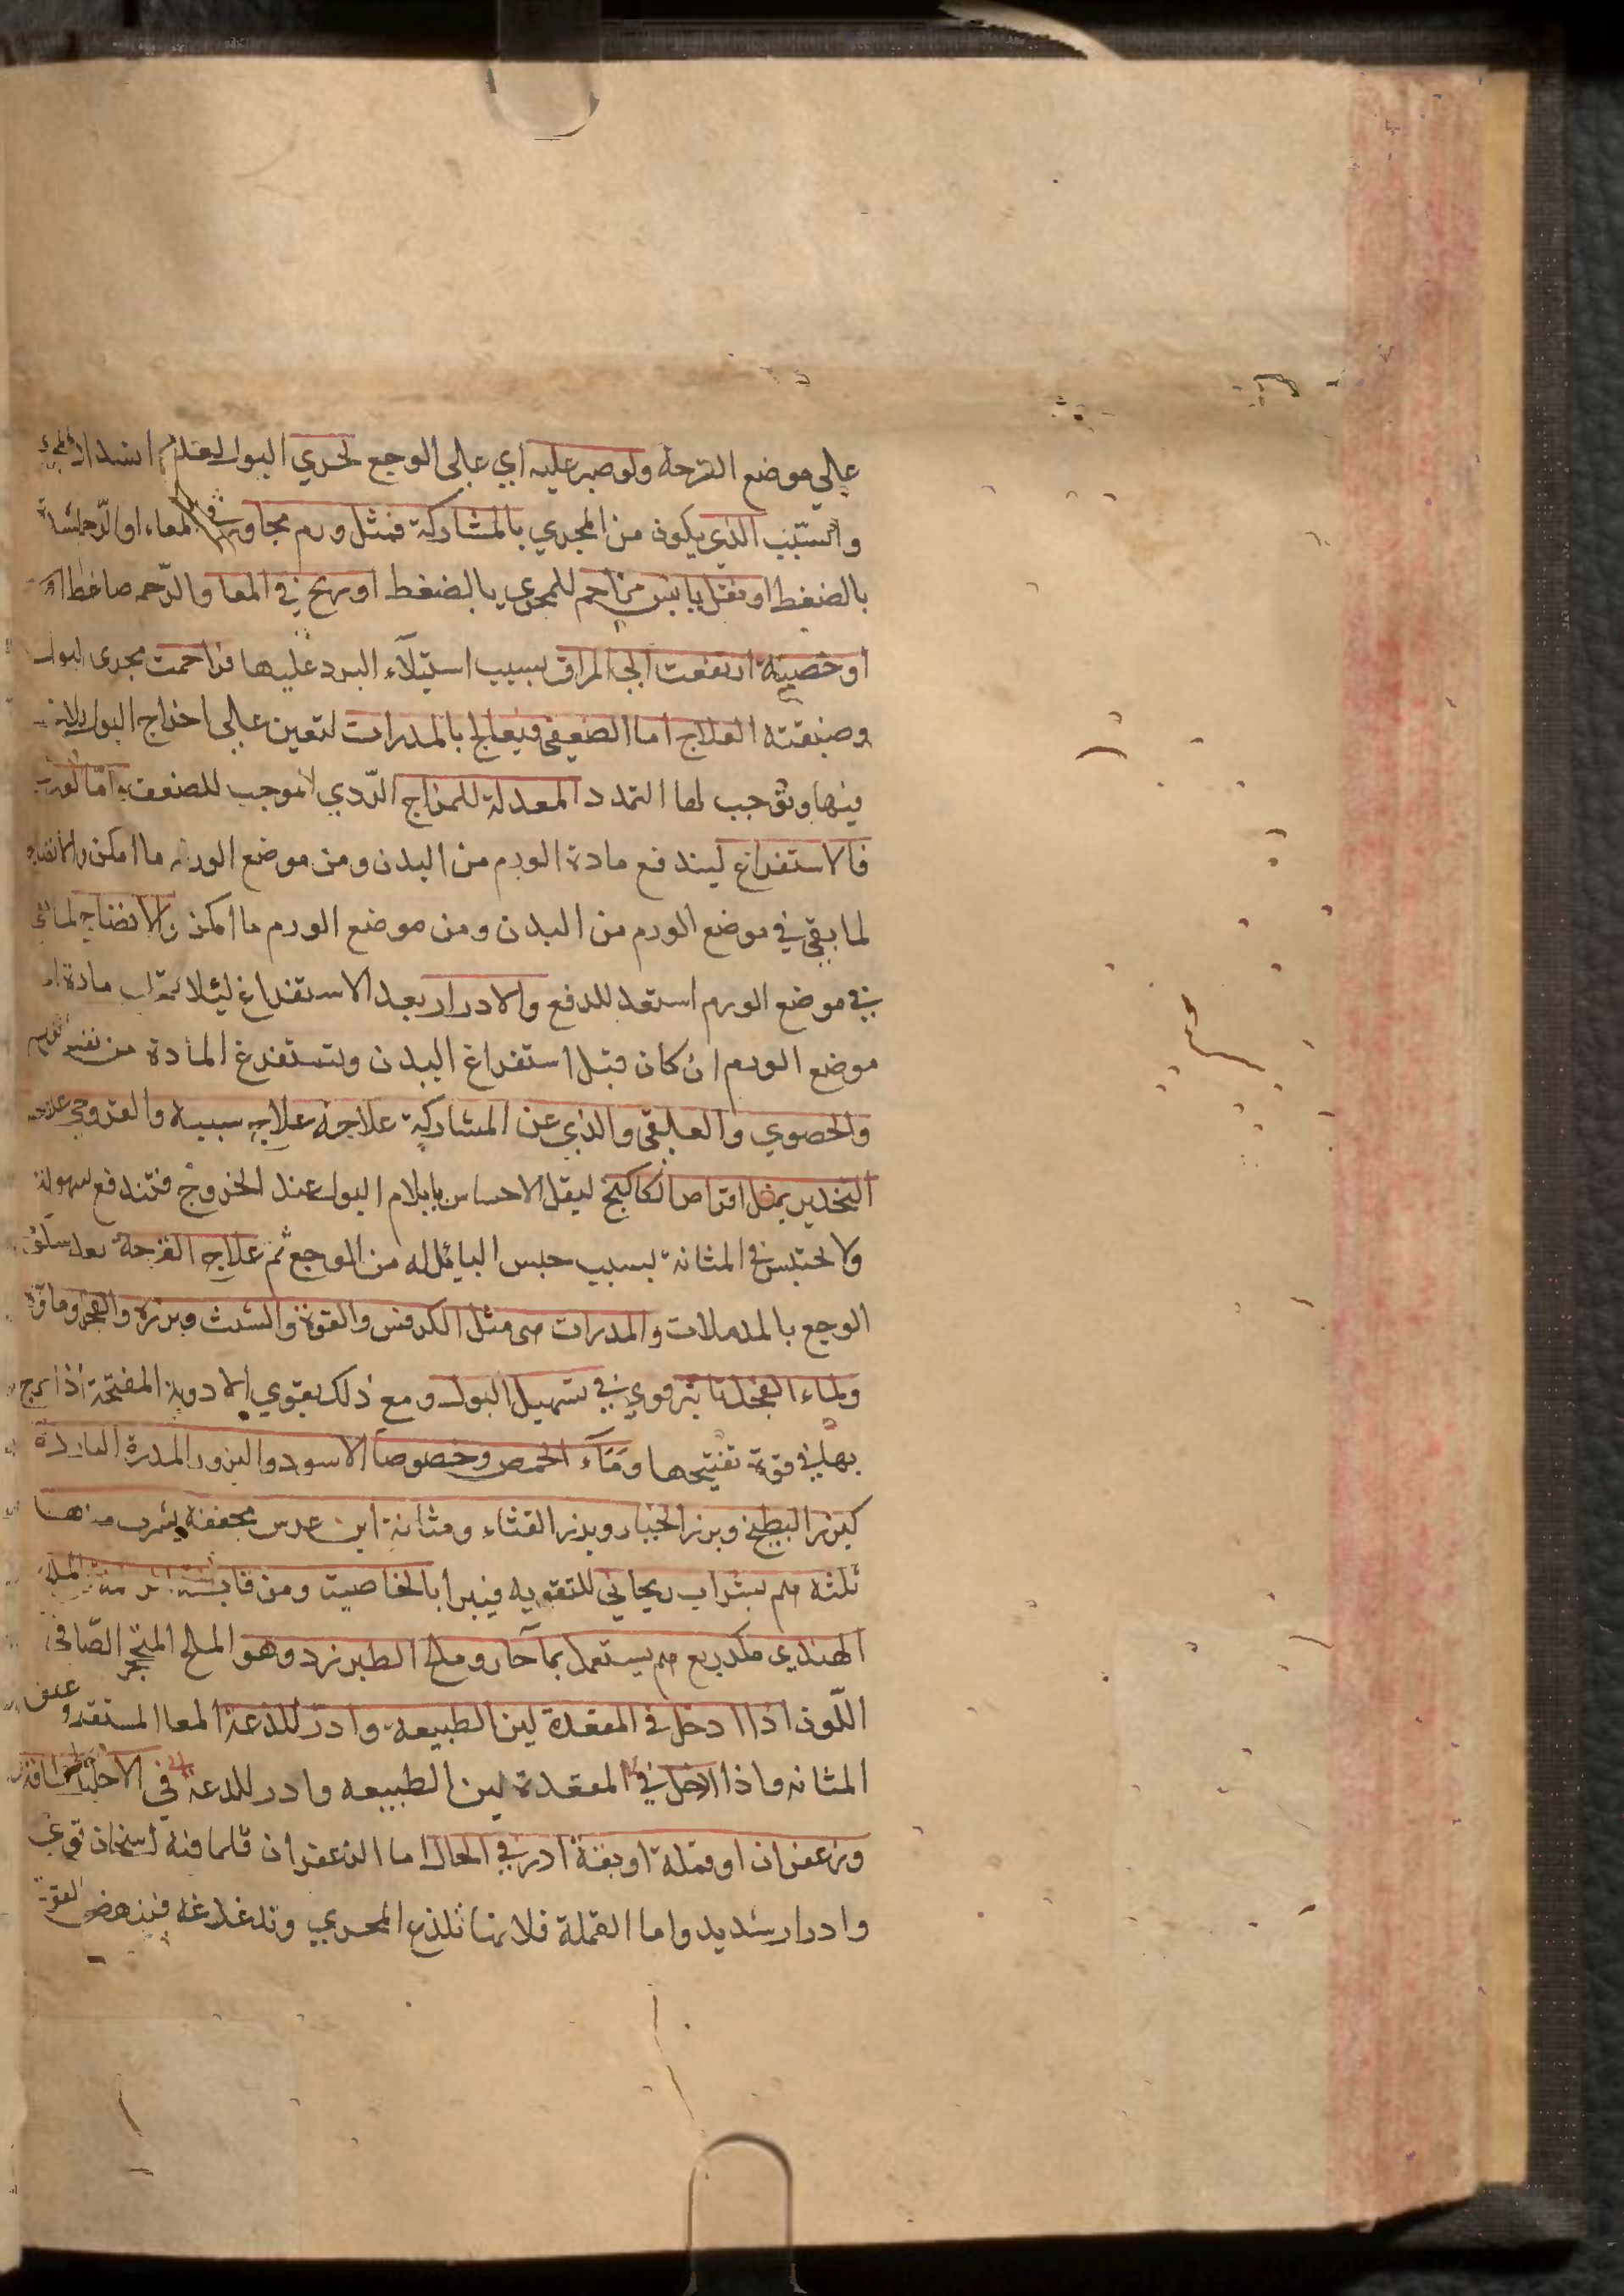 علي موضع القرحة ولو صبر عليه اي علي الوجع لجري البول لعدم انسداد المجري
والسبب الذي يكون من المجري بالمشاركة فمثل ورم مجاور في المعاء او الرحم
بالضغط او ثفل يابس مزاحم للمجري بالضغط او ريح في المعا والرحم ضاغط
او خصية ارتفعت الي المراق بسبب استيلآء البرد عليها فزاحمت مجري البول
وضيقته العلاج اما الضعفي فيعالج بالمدرات لتعين علي اخراج البول
فيها وتوجب لها التمدد المعدلة للمزاج الردي الموجب للضعف واما الورمي
فالاستفراغ ليندفع مادة الورم من البدن ومن موضع الورم ما امكن والانضاج
لما بقي في موضع الورم من البدن ومن موضع الورم ما امكن والانضاج لما بقي
في موضع الورم استعد للدفع والادرار بعد الاستفراغ ليلا مادة
موضع الورم ان كان قبل استفراغ البدن وتستفرغ المادة من نفس الورم
والحصوي والعلقي والذي عن المشاركة علاجه علاج سببه والقروحي علاجه
التخدير بمثل اقراص الكاكنج ليقل الاحساس بايلام البول عند الخروج فتندفع بسهولة
ولا يحتبس في المثانة بسبب حبس البايل له من الوجع ثم علاج القرحة بعد سكون
الوجع بالمدملات والمدرات هي مثل الكرفس والفوة والشبث وبزره والفجل وماؤه
ولماء الفجل تاثير قوي في تسهيل البول ومع ذلك يقوي الادوية المفتحة اذا مزج
بها في قوة تفتيحها ومآء الحمص وخصوصا الاسود والبزور المدرة الباردة
كبزر البطيخ وبزر الخيار وبزر القثاء ومثانة ابن عرس مجففة يشرب منها
ثلثه مم بشراب ريحاني للتقويه فيبرا بالخاصيت ومن
الهندي ربع مم يستعمل بمآ حار وملح الطبرزد وهو الملح المتحجر الصافي
اللون اذا ادخل في المقعدة لين الطبيعه وادر للذعه المعا المستقيم وعنق
المثانه واذا ادخل في المقعدة لين الطبيعه وادر للدعه في الاحليل
وزعفران او قملة او بقة ادر في الحال اما الزعفران فلما فيه اسخان قوي
وادرار شديد واما القملة فلانها تلذع المجري وتدغدغه فينهض القوة